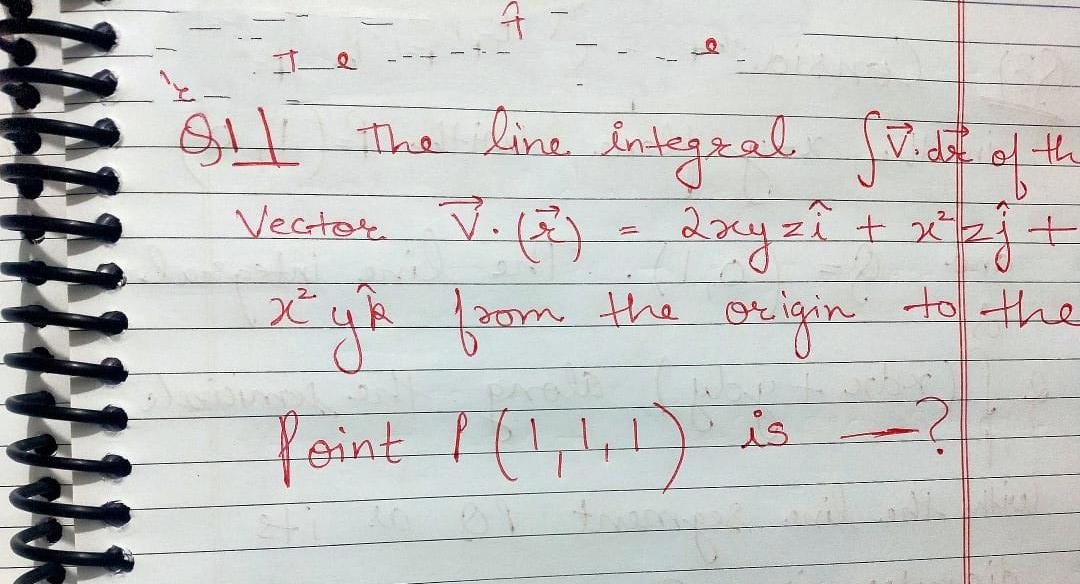 Q11 The line integral ∫V⃗.dr⃗ of th
Vector V⃗.(r⃗) = 2xyzî + x²zĵ +
x²yk̂ from the origin to the
Point P(1,1,1) is —?